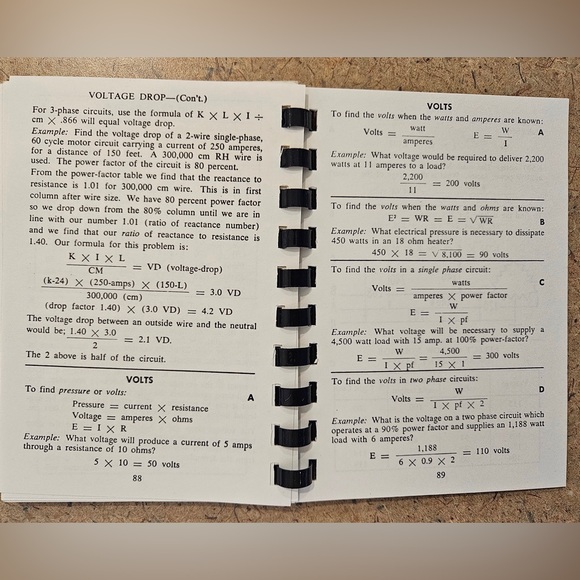 VOLTAGE DROP—(Con't.)
For 3-phase circuits, use the formula of K × L × I ÷
cm × .866 will equal voltage drop.
Example: Find the voltage drop of a 2-wire single-phase,
60 cycle motor circuit carrying a current of 250 amperes,
for a distance of 150 feet. A 300,000 cm RH wire is
used. The power factor of the circuit is 80 percent.
From the power-factor table we find that the reactance to
resistance is 1.01 for 300,000 cm wire. This is in first
column after wire size. We have 80 percent power factor
so we drop down from the 80% column until we are in
line with our number 1.01 (ratio of reactance number)
and we find that our ratio of reactance to resistance is
1.40. Our formula for this problem is:
K × I × L
CM = VD (voltage-drop)
(k-24) × (250-amps) × (150-L)
300,000 (cm) = 3.0 VD
(drop factor 1.40) × (3.0 VD) = 4.2 VD
The voltage drop between an outside wire and the neutral
would be; 1.40 × 3.0
2 = 2.1 VD.
The 2 above is half of the circuit.
VOLTS
To find pressure or volts: A
Pressure = current × resistance
Voltage = amperes × ohms
E = I × R
Example: What voltage will produce a current of 5 amps
through a resistance of 10 ohms?
5 × 10 = 50 volts
88
VOLTS
To find the volts when the watts and amperes are known:
Volts = watt E = W A
amperes I
Example: What voltage would be required to deliver 2,200
watts at 11 amperes to a load?
2,200
11 = 200 volts
To find the volts when the watts and ohms are known:
E² = WR = E = √WR B
Example: What electrical pressure is necessary to dissipate
450 watts in an 18 ohm heater?
450 × 18 = √8,100 = 90 volts
To find the volts in a single phase circuit:
Volts = watts C
amperes × power factor
E = W
I × pf
Example: What voltage will be necessary to supply a
4,500 watt load with 15 amp. at 100% power-factor?
E = W = 4,500 = 300 volts
I × pf 15 × 1
To find the volts in two phase circuits:
Volts = W D
I × pf × 2
Example: What is the voltage on a two phase circuit which
operates at a 90% power factor and supplies an 1,188 watt
load with 6 amperes?
E = 1,188 = 110 volts
6 × 0.9 × 2
89